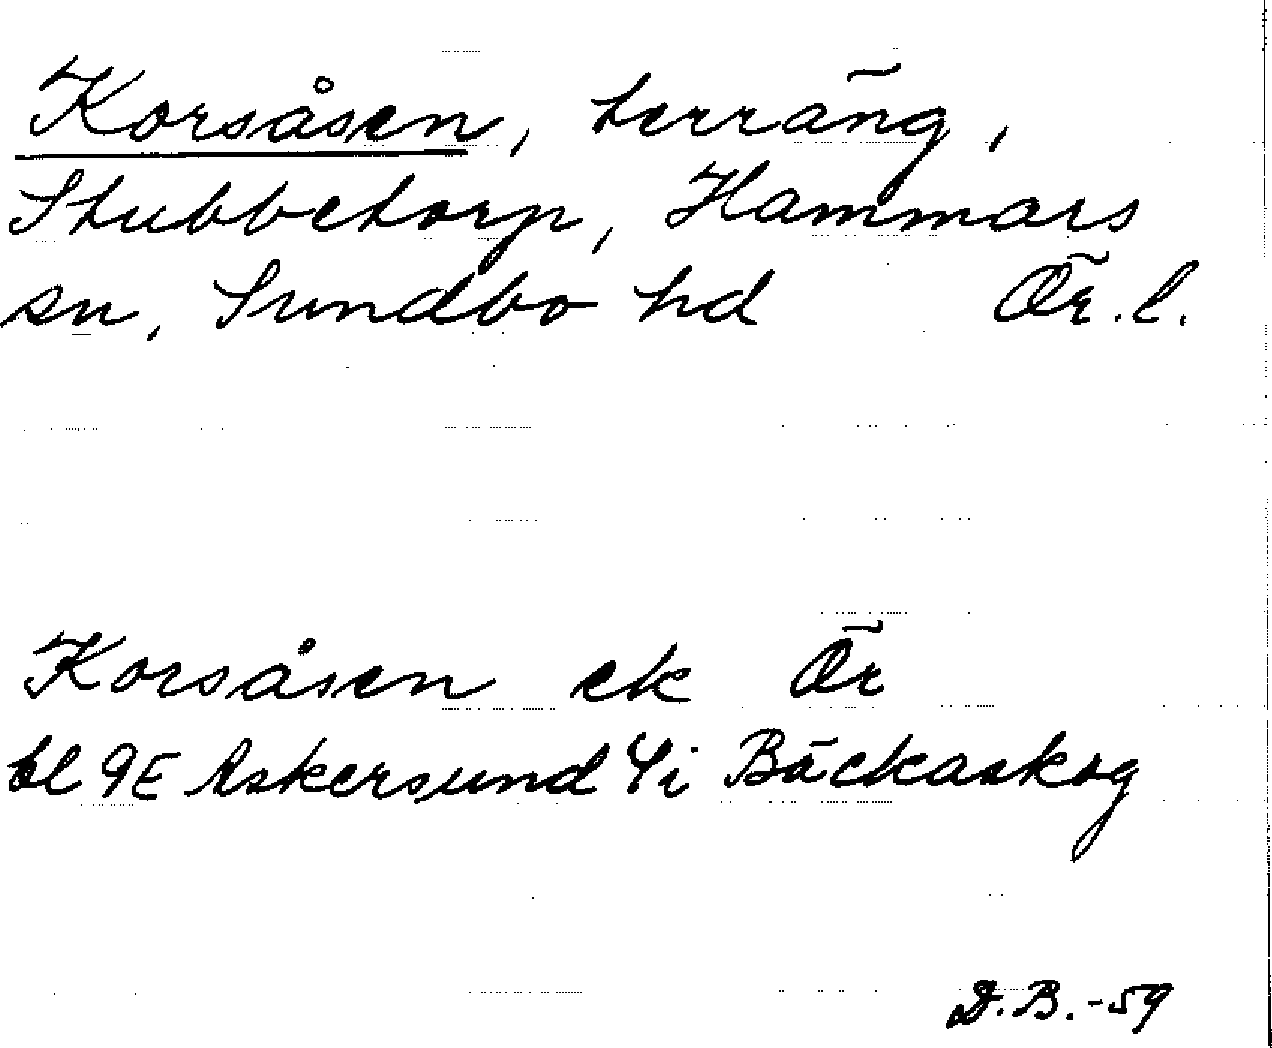 Korsåsen, terräng,
Stubbetorp, Hammars
sn, Sundbo hd Ör. l.
Korsåsen ek Ör
bl 9E Askersund 4i Bäckaskog
D.B.-59